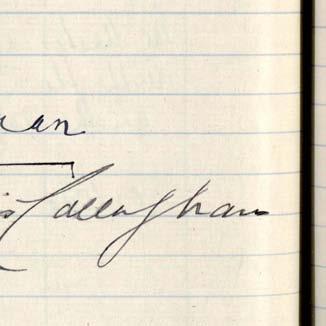 an
Callaghan